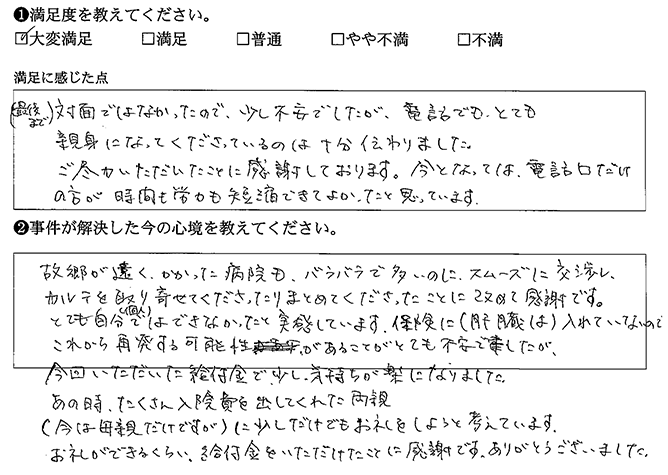 ❶満足度を教えてください。
☑大変満足 □満足 □普通 □やや不満 □不満
満足に感じた点
(最後まで)対面ではなかったので、少し不安でしたが、電話でも、とても
親身になってくださっているのは十分伝わりました。
ご尽力いただいたことに感謝しております。今となっては、電話口だけ
の方が時間も労力も短縮できてよかったと思っています。
❷事件が解決した今の心境を教えてください。
故郷が遠く、かかった病院も、バラバラで多いのに、スムーズに交渉し、
カルテを取り寄せてくださったりまとめてくださったことに改めて感謝です。
とても自分(個人)ではできなかったと実感しています。保険に(肝臓は)入れていないので
これから再発する可能性があることがとても不安でしたが、
今回いただいた給付金で、少し気持ちが楽になりました。
あの時、たくさん入院費を出してくれた両親
(今は母親だけですが)に少しだけでもお礼をしようと考えています。
お礼ができるくらい、給付金をいただけたことに感謝です。ありがとうございました。